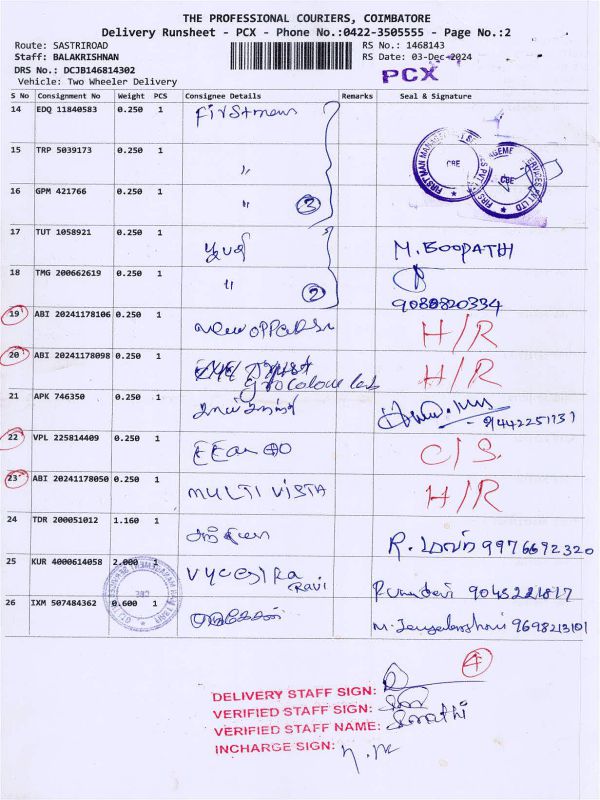 THE PROFESSIONAL COURIERS, COIMBATORE
Delivery Runsheet - PCX - Phone No.:0422-3505555 - Page No.:2
Route: SASTRIROAD
RS No.: 1468143
Staff: BALAKRISHNAN
RS Date: 03-Dec-2024
DRS No.: DCJB146814302
PCX
Vehicle: Two Wheeler Delivery
S No Consignment No Weight PCS Consignee Details Remarks Seal & Signature
14 EDQ 11840583 0.250 1 Firstman
15 TRP 5039173 0.250 1 "
16 GPM 421766 0.250 1 " 3
17 TUT 1058921 0.250 1 பூபதி M. BOOPATHI
18 TMG 200662619 0.250 1 " 2
9080820334
19 ABI 20241178106 0.250 1 H/R
20 ABI 20241178098 0.250 1 H/R
21 APK 746350 0.250 1
22 VPL 225814409 0.250 1 C/S.
23 ABI 20241178050 0.250 1 MULTI VISTA H/R
24 TDR 200051012 1.160 1 R. 9976692320
25 KUR 4000614058 2.000 1 Ravi 9043221817
26 IXM 507484362 0.600 1 9698213101
4
DELIVERY STAFF SIGN:
VERIFIED STAFF SIGN:
VERIFIED STAFF NAME: Sarathi
INCHARGE SIGN: